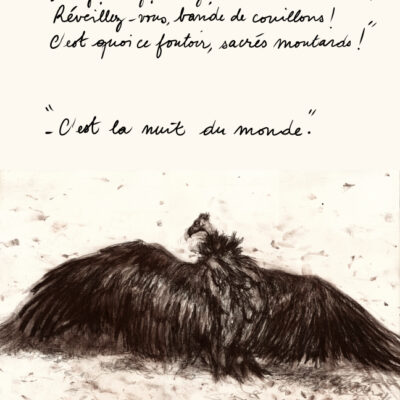 Réveillez-vous, bande de couillons !
C'est quoi ce foutoir, sacrés moutards ! "
"- C'est la nuit du monde."